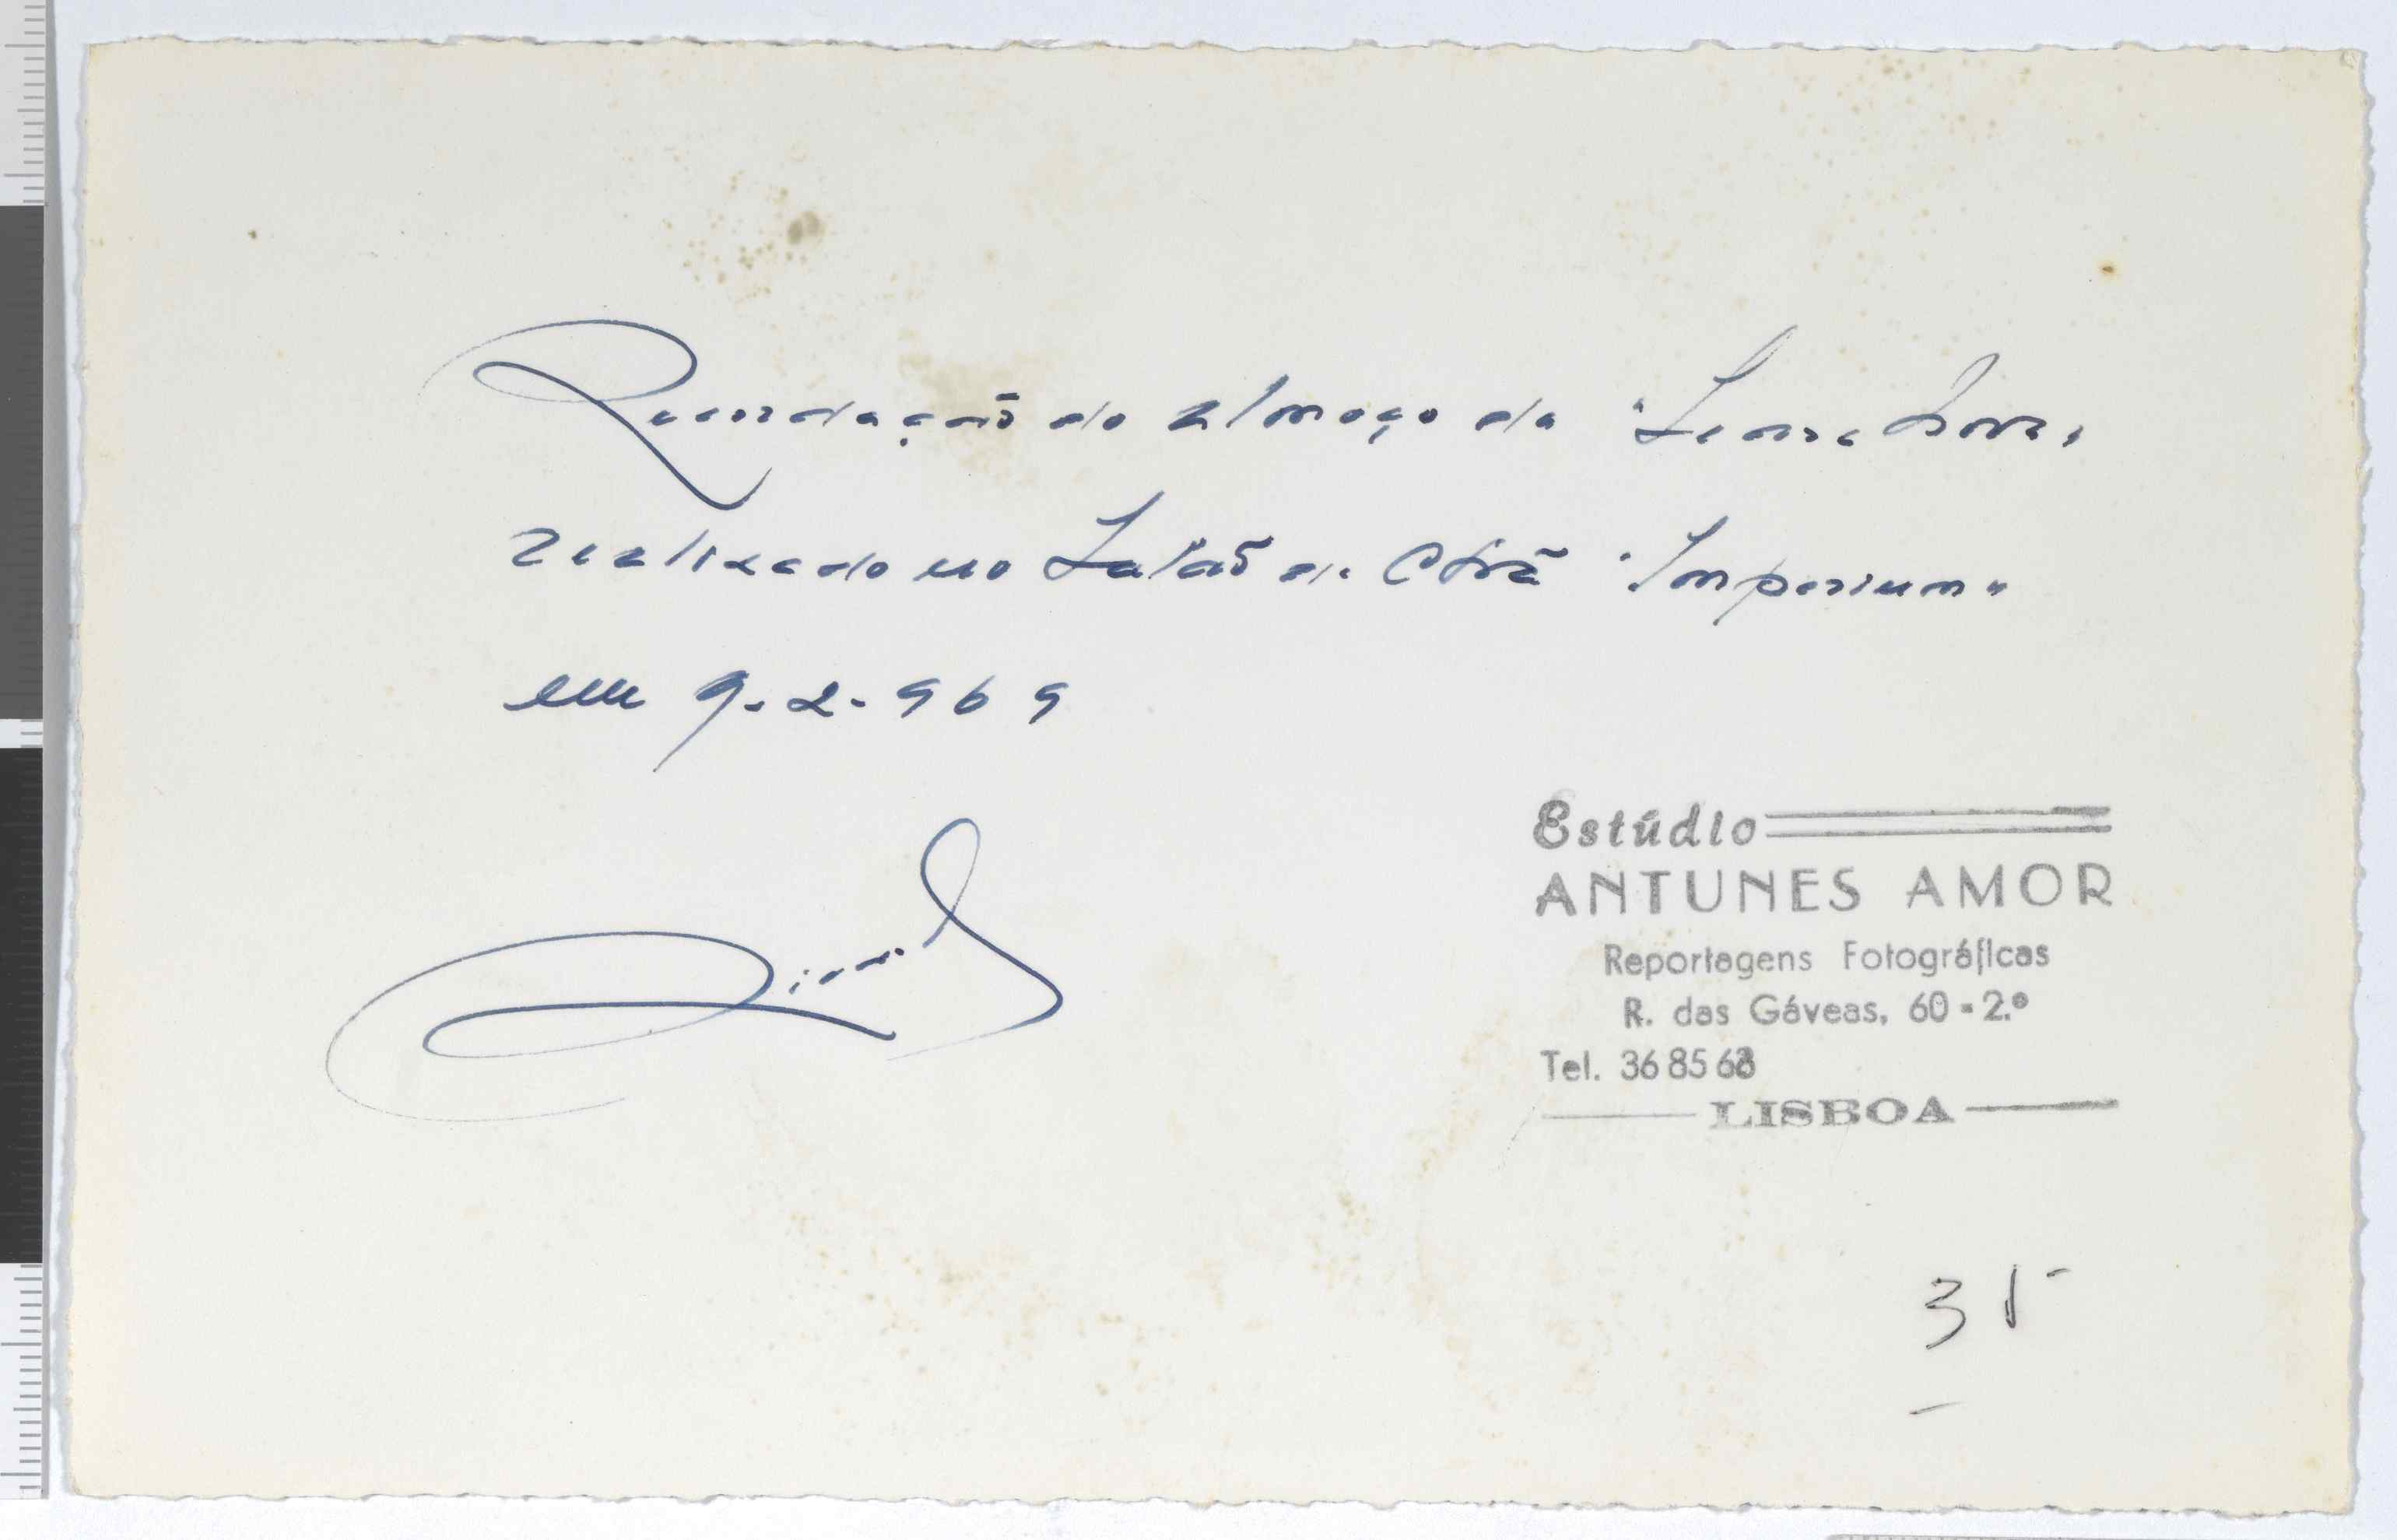 Recordação do almoço da "
realizado no Salão de Chã "Imperium"
em 9-2-969
Estúdio
ANTUNES AMOR
Reportagens Fotográficas
R. das Gáveas, 60-2.º
Tel. 36 85
LISBOA
35